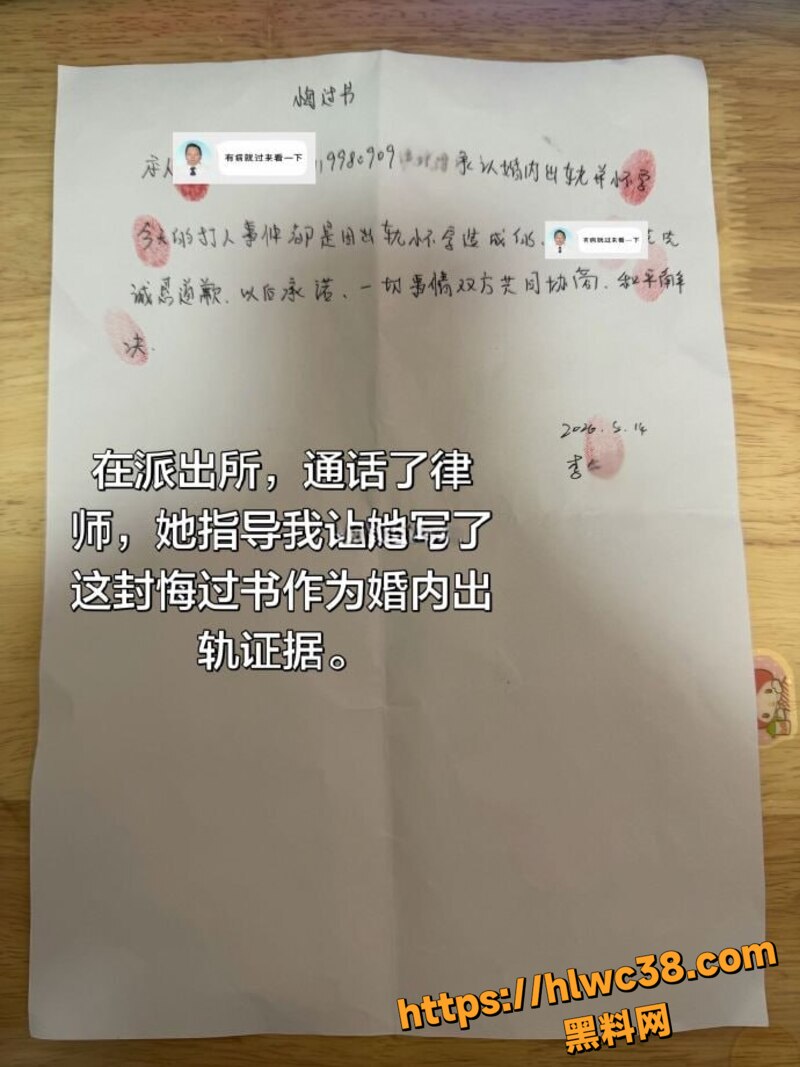 悔过书
本人
有病就过来看一下
19980909
承认婚内出轨并怀孕
今天的打人事件都是因出轨怀孕造成的、
有病就过来看一下
先
诚恳道歉、以后承诺、一切事情双方共同协商、和平解
决.
2026.5.14
李
在派出所，通话了律
师，她指导我让她写了
这封悔过书作为婚内出
轨证据。
https://hlwc38.com
黑料网